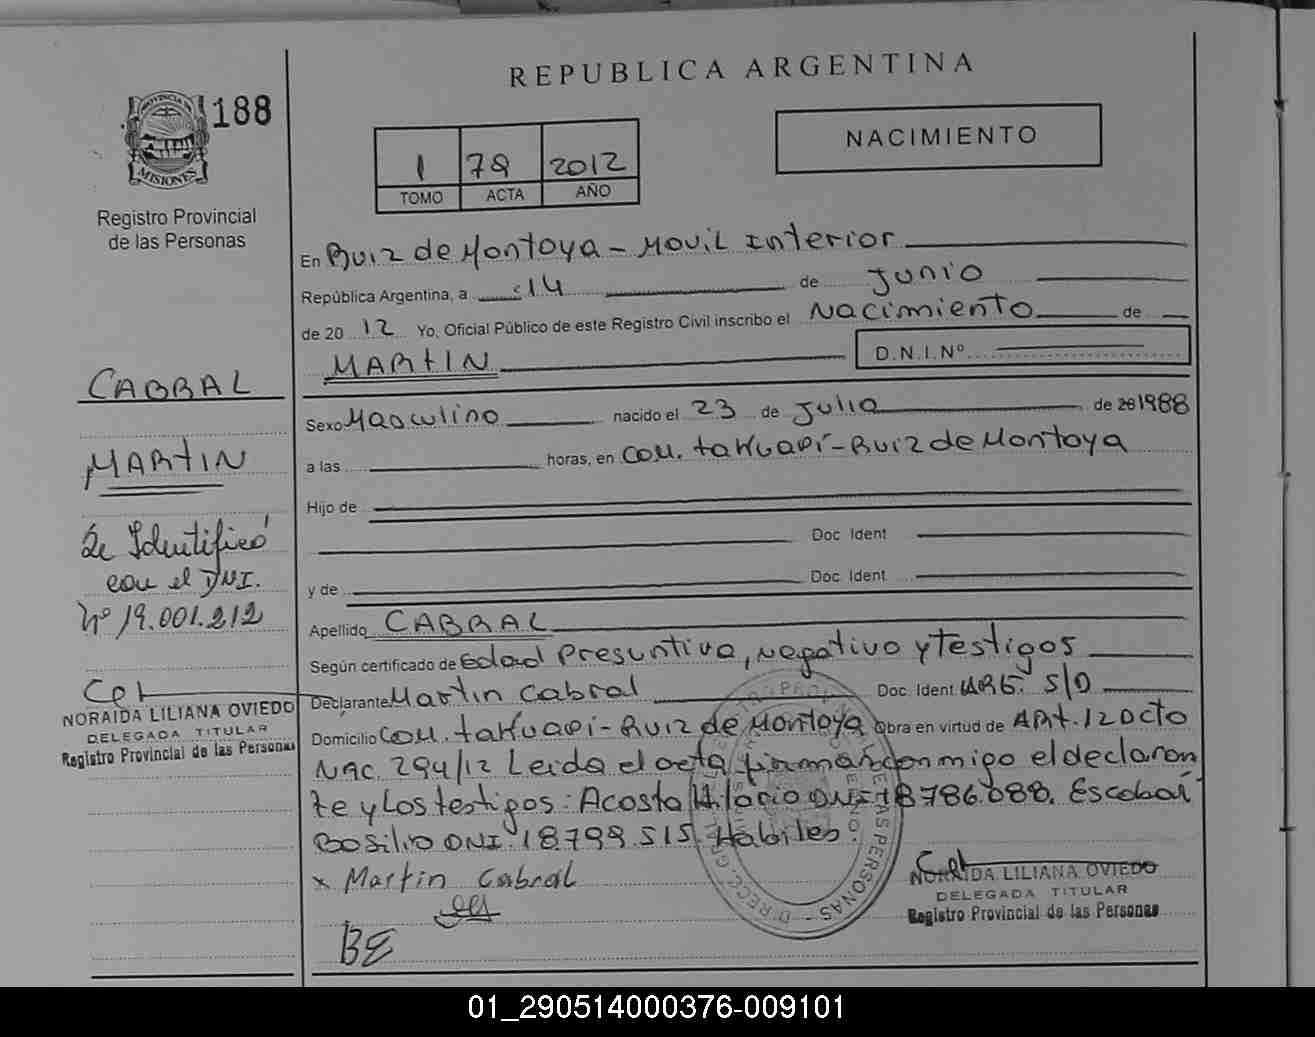 REPUBLICA ARGENTINA
PROVINCIA DE
MISIONES
188
Registro Provincial
de las Personas
1 79 2012
TOMO ACTA AÑO
NACIMIENTO
En Ruiz de Montoya - Movil Interior
República Argentina, a 14 de Junio
de 20 12 Yo, Oficial Público de este Registro Civil inscribo el Nacimiento de
MARTIN D.N.I.Nº
Sexo Masculino nacido el 23 de Julio de 20 1988
a las horas, en Com. takuapí - Ruiz de Montoya
Hijo de
Doc. Ident
y de Doc. Ident
Apellido CABRAL
Según certificado de Edad Presuntiva, Negativo y Testigos
Declarante Martin Cabral Doc. Ident ARG. S/D
Domicilio Com. takuapí - Ruiz de Montoya Obra en virtud de Art. 12 Dcto
Nac. 294/12 Leida el acta firman conmigo el declaran
te y Los testigos: Acosta Hilario DNI 18786.088. Escobar
Basilio DNI. 18.799.515. Habiles.
x Martin Cabral
BE
NORAIDA LILIANA OVIEDO
DELEGADA TITULAR
Registro Provincial de las Personas
CABRAL
MARTIN
Se Identificó
con el DNI.
Nº 19.001.212
NORAIDA LILIANA OVIEDO
DELEGADA TITULAR
Registro Provincial de las Personas
01_290514000376-009101